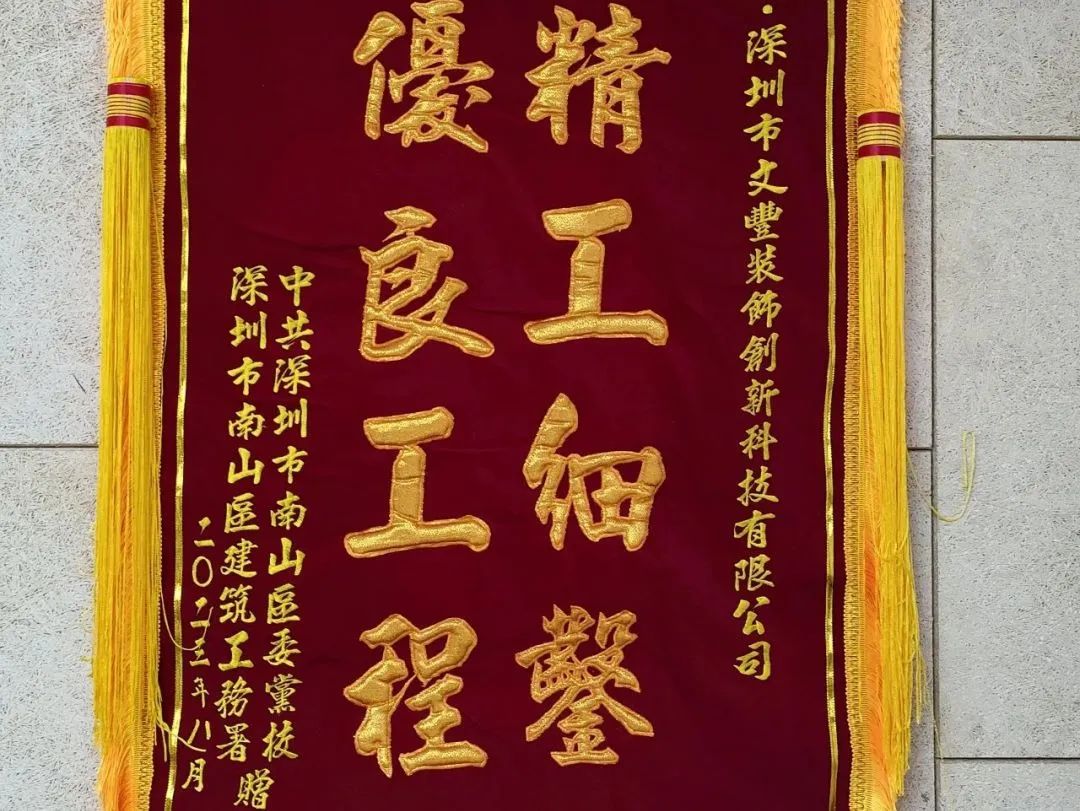 深圳市文豐装飾創新科技有限公司
精工細鑿
優良工程
中共深圳市南山區委黨校
深圳市南山區建筑工務署 贈
二〇二三年八月